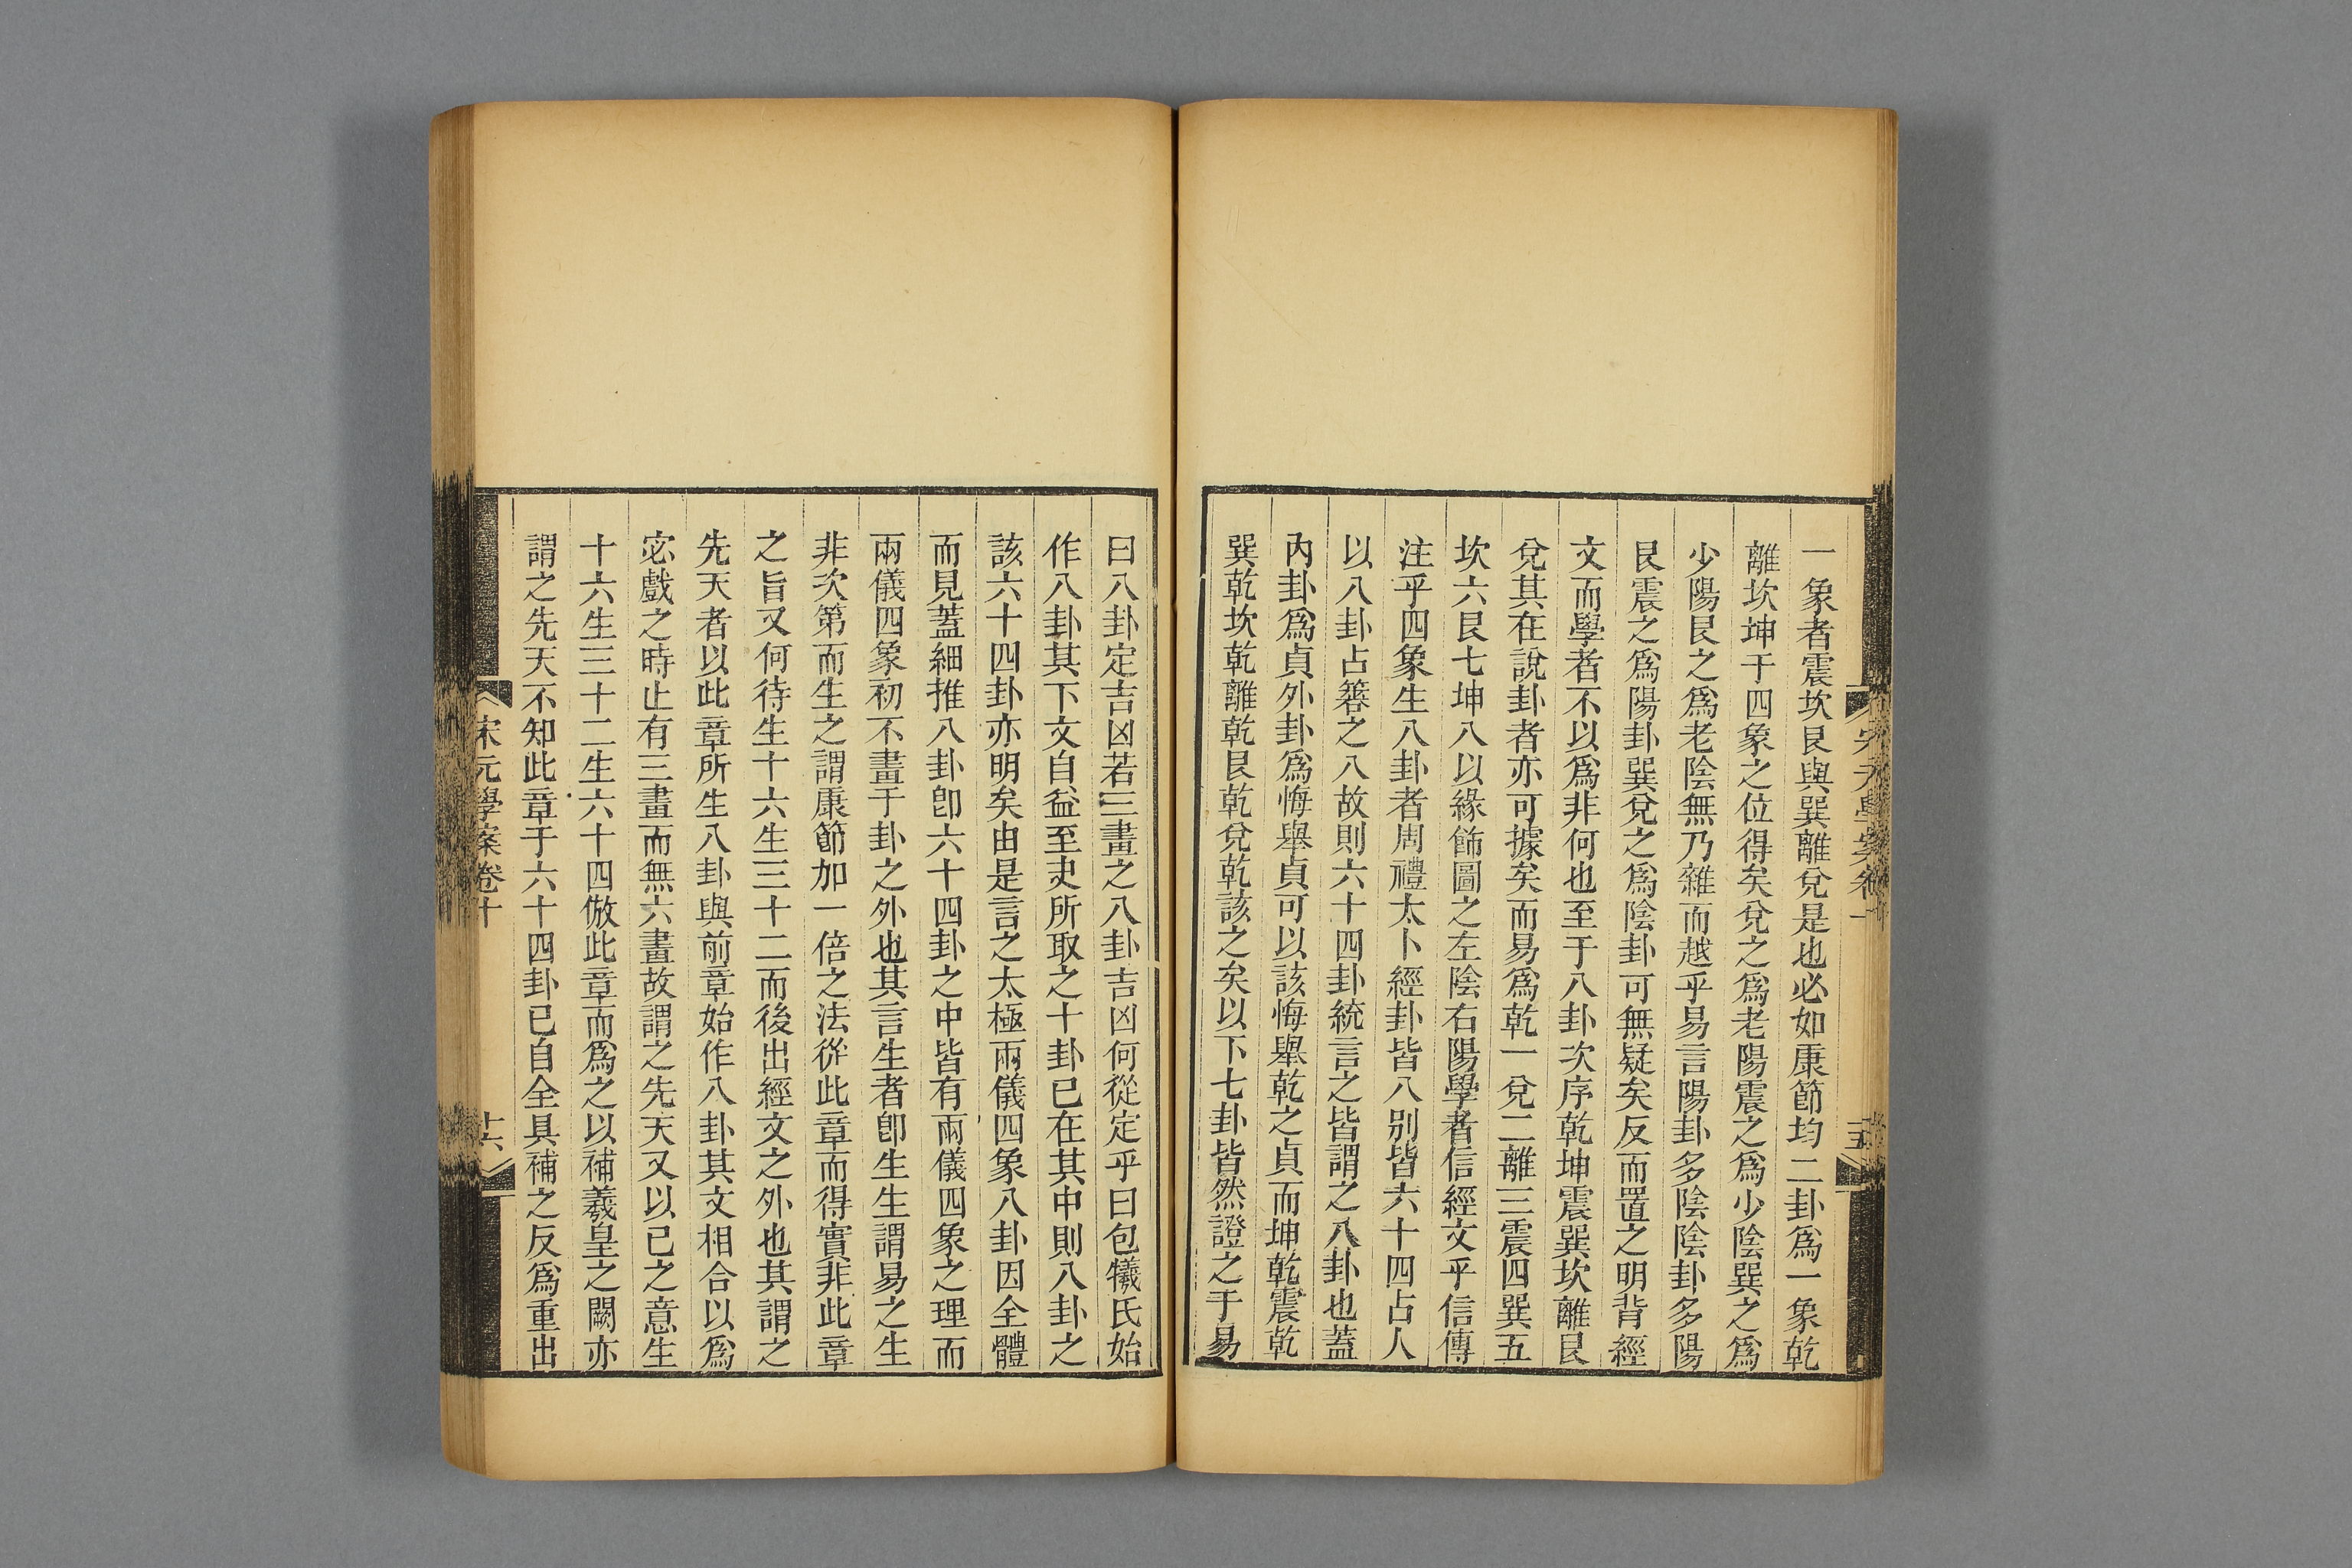 一象者震坎艮與巽離兌是也必如康節均二卦爲一象乾
離坎坤于四象之位得矣兌之爲老陽震之爲少陰巽之爲
少陽艮之爲老陰無乃雜而越乎易言陽卦多陰陰卦多陽
艮震之爲陽卦巽兌之爲陰卦可無疑矣反而置之明背經
文而學者不以爲非何也至于八卦次序乾坤震巽坎離艮
兌其在說卦者亦可據矣而易爲乾一兌二離三震四巽五
坎六艮七坤八以緣飾圖之左陰右陽學者信經文乎信傳
注乎四象生八卦者周禮太卜經卦皆八別皆六十四占人
以八卦占簭之八故則六十四卦統言之皆謂之八卦也蓋
內卦爲貞外卦爲悔舉貞可以該悔舉乾之貞而坤乾震乾
巽乾坎乾離乾艮乾兌乾該之矣以下七卦皆然證之于易
曰八卦定吉凶若三畫之八卦吉凶何從定乎曰包犧氏始
作八卦其下文自益至夬所取之十卦已在其中則八卦之
該六十四卦亦明矣由是言之太極兩儀四象八卦因全體
而見蓋細推八卦卽六十四卦之中皆有兩儀四象之理而
兩儀四象初不畫于卦之外也其言生者卽生生謂易之生
非次第而生之謂康節加一倍之法從此章而得實非此章
之旨又何待生十六生三十二而後出經文之外也其謂之
先天者以此章所生八卦與前章始作八卦其文相合以爲
宓戲之時止有三畫而無六畫故謂之先天又以已之意生
十六生三十二生六十四倣此章而爲之以補羲皇之闕亦
謂之先天不知此章于六十四卦已自全具補之反爲重出
宋元學案卷十
十六